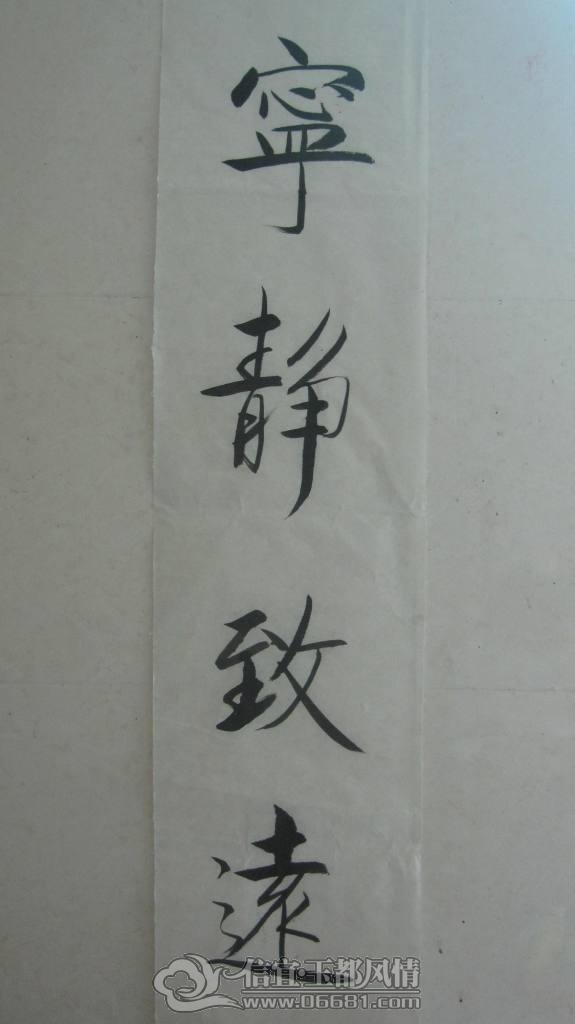 寧静致遠
信宜玉都风情
www.06681.com